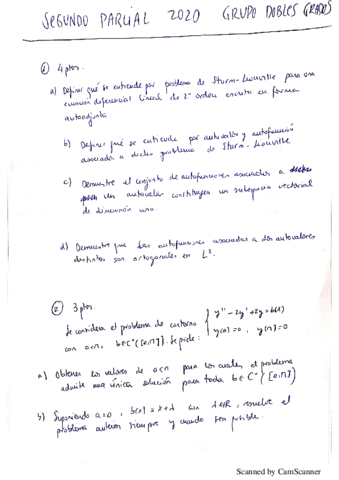 SEGUNDO PARCIAL 2020 GRUPO DOBLES GRADOS
① 4 ptos.
a) Definir qué se entiende por problema de Sturm-Liouville para una
ecuación diferencial lineal de 2º orden escrita en forma
autoadjunta
b) Definir qué se entiende por autovalor y autofunción
asociados a dicho problema de Sturm-Liouville
c) Demuestre el conjunto de autofunciones asociadas a
un autovalor constituyen un subespacio vectorial
de dimensión uno.
d) Demuestre que las autofunciones asociadas a dos autovalores
distintos son ortogonales en L².
② 3 ptos.
Se considera el problema de contorno { y'' - 2y' + 2y = b(x)
con a<π, b∈C([a,π]). Se pide: y(a)=0, y(π)=0
a) Obtener los valores de a<π para los cuales el problema
admite una única solución para toda b∈C [a,π]
b) Suponiendo a=0, b(x)=x+λ con λ∈ℝ, resuelve el
problema anterior siempre y cuando sea posible.
Scanned by CamScanner